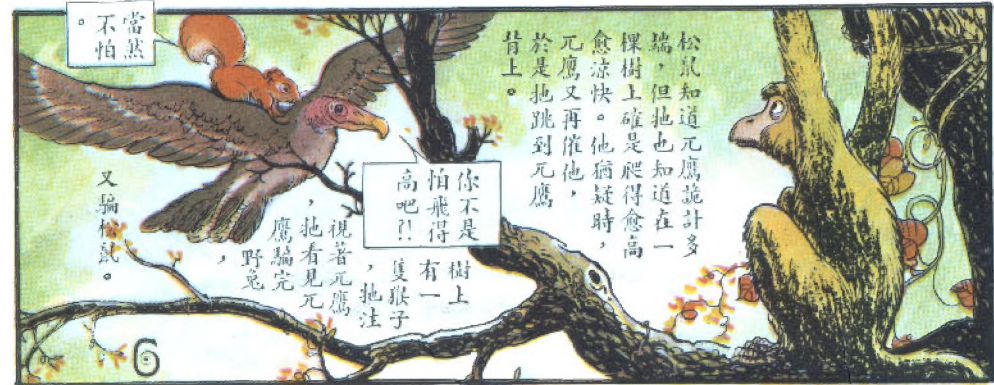 松鼠知道兀鷹詭計多
端，但牠也知道在一
棵樹上確是爬得愈高
愈涼快。他猶疑時，
兀鷹又再催他，
於是牠跳到兀鷹
背上。
你不是
怕飛得
高吧?!
當然
不怕
。
樹上
有一
隻猴子
，牠注
視著兀鷹
，牠看見兀
鷹騙完
野兔
，
又騙松鼠。
6